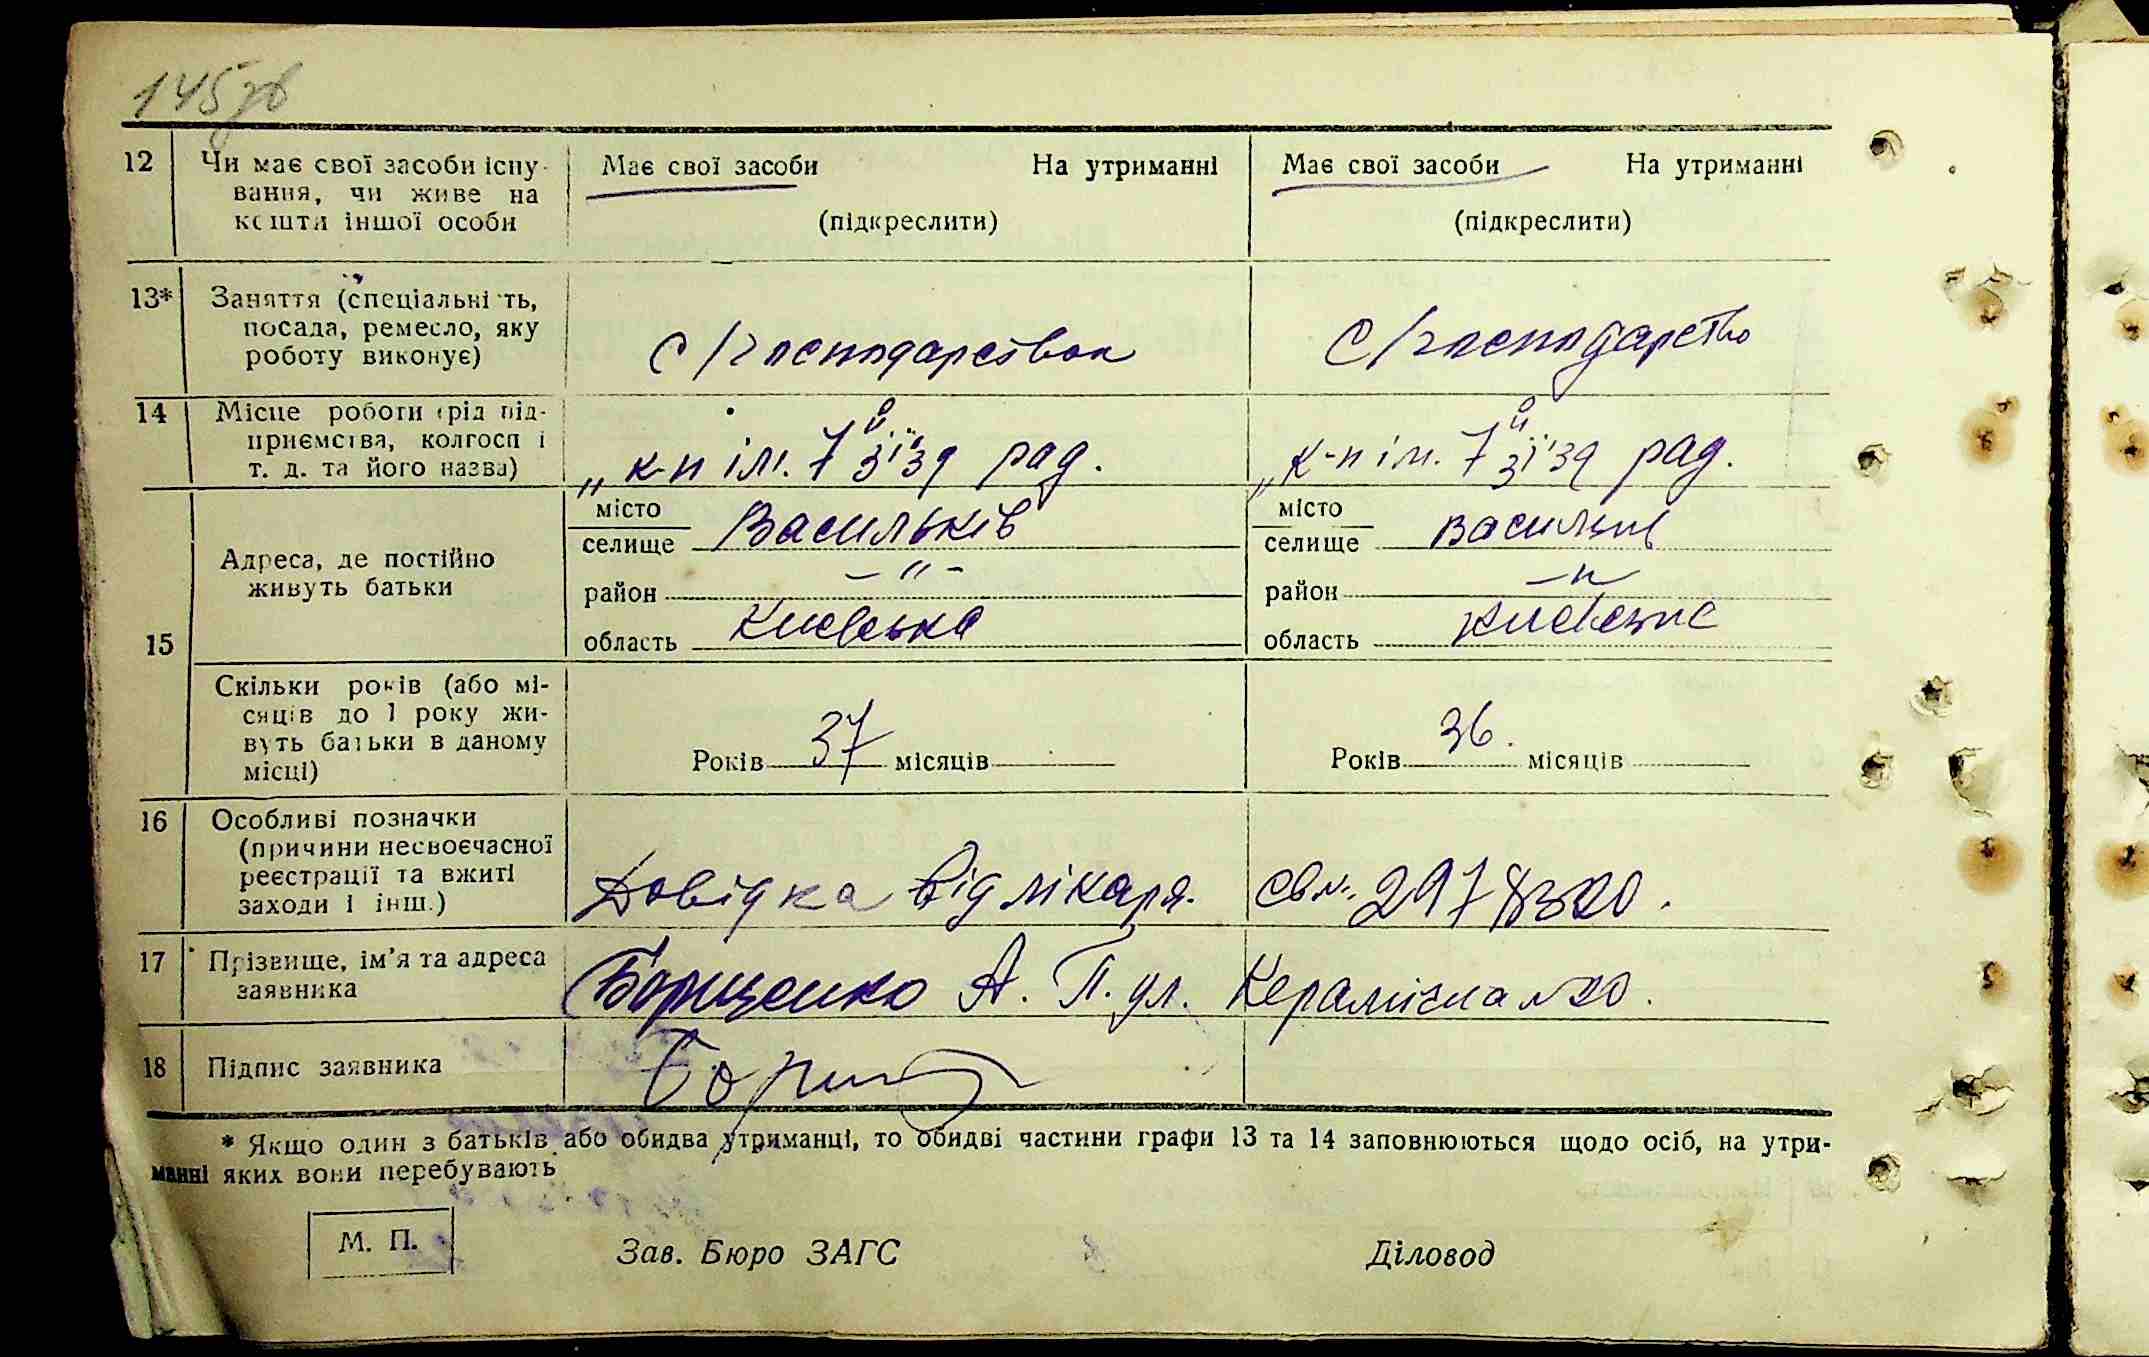 145 зв
12 Чи має свої засоби існу- Має свої засоби На утриманні Має свої засоби На утриманні
вання, чи живе на
кошти іншої особи (підкреслити) (підкреслити)
13* Заняття (спеціальність,
посада, ремесло, яку с/господарством с/господарство
роботу виконує)
14 Місце роботи (рід під-
приємства, колгосп і „к-п ім. 7й з'їзд рад. „к-п ім. 7й з'їзд рад.
т. д. та його назва)
місто місто
Васильків Васильків
селище селище
Адреса, де постійно
живуть батьки район –"– район –"–
15 область Київська область Київська
Скільки років (або мі-
сяців до 1 року жи-
вуть батьки в даному Років 37 місяців Років 36. місяців
місці)
16 Особливі позначки
(причини несвоєчасної
реєстрації та вжиті Довідка від лікаря.
заходи і інш.)
17 Прізвище, ім'я та адреса Борщенко А. П. ул. Керамічна №20.
заявника
18 Підпис заявника
* Якщо один з батьків або обидва утриманці, то обидві частини графи 13 та 14 заповнюються щодо осіб, на утри-
манні яких вони перебувають
М. П. Зав. Бюро ЗАГС Діловод